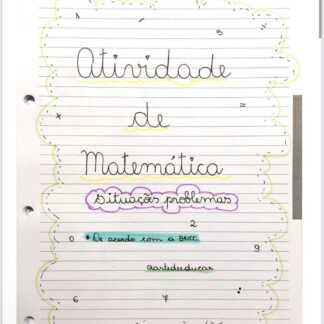 1
5
Atividade
=
+
de
Matemática
Situações problemas
2
0 *De acordo com a BNCC.
9
@artedeeducar
6 7